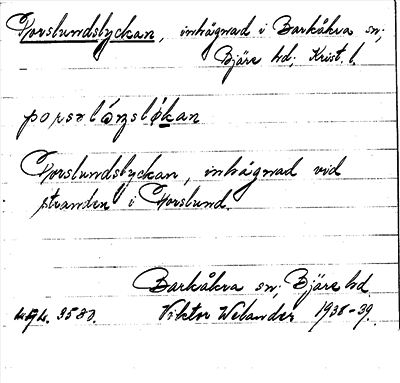 Porslundslyckan, inhägnad i Barkåkra sn;
Bjäre hd; Krist. l.
Porslundslyckan, inhägnad vid
stranden i Porslund.
Barkåkra sn; Bjäre hd.
3580. Viktor Welander 1938-39.